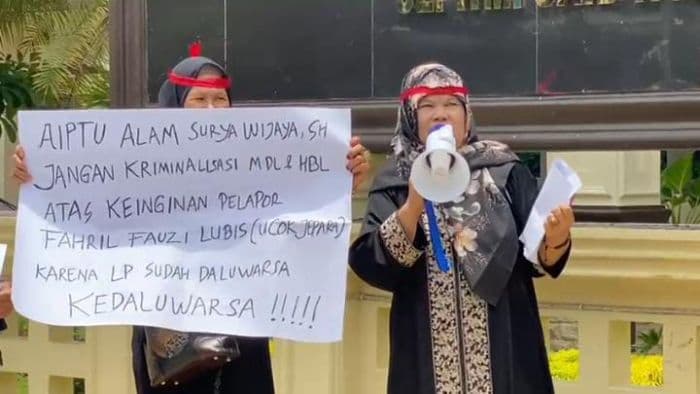 AIPTU ALAM SURYA WIJAYA, SH
JANGAN KRIMINALISASI MDL & HBL
ATAS KEINGINAN PELAPOR
FAHRIL FAUZI LUBIS (UCOK JEPARA)
KARENA LP SUDAH DALUWARSA
KEDALUWARSA !!!!!